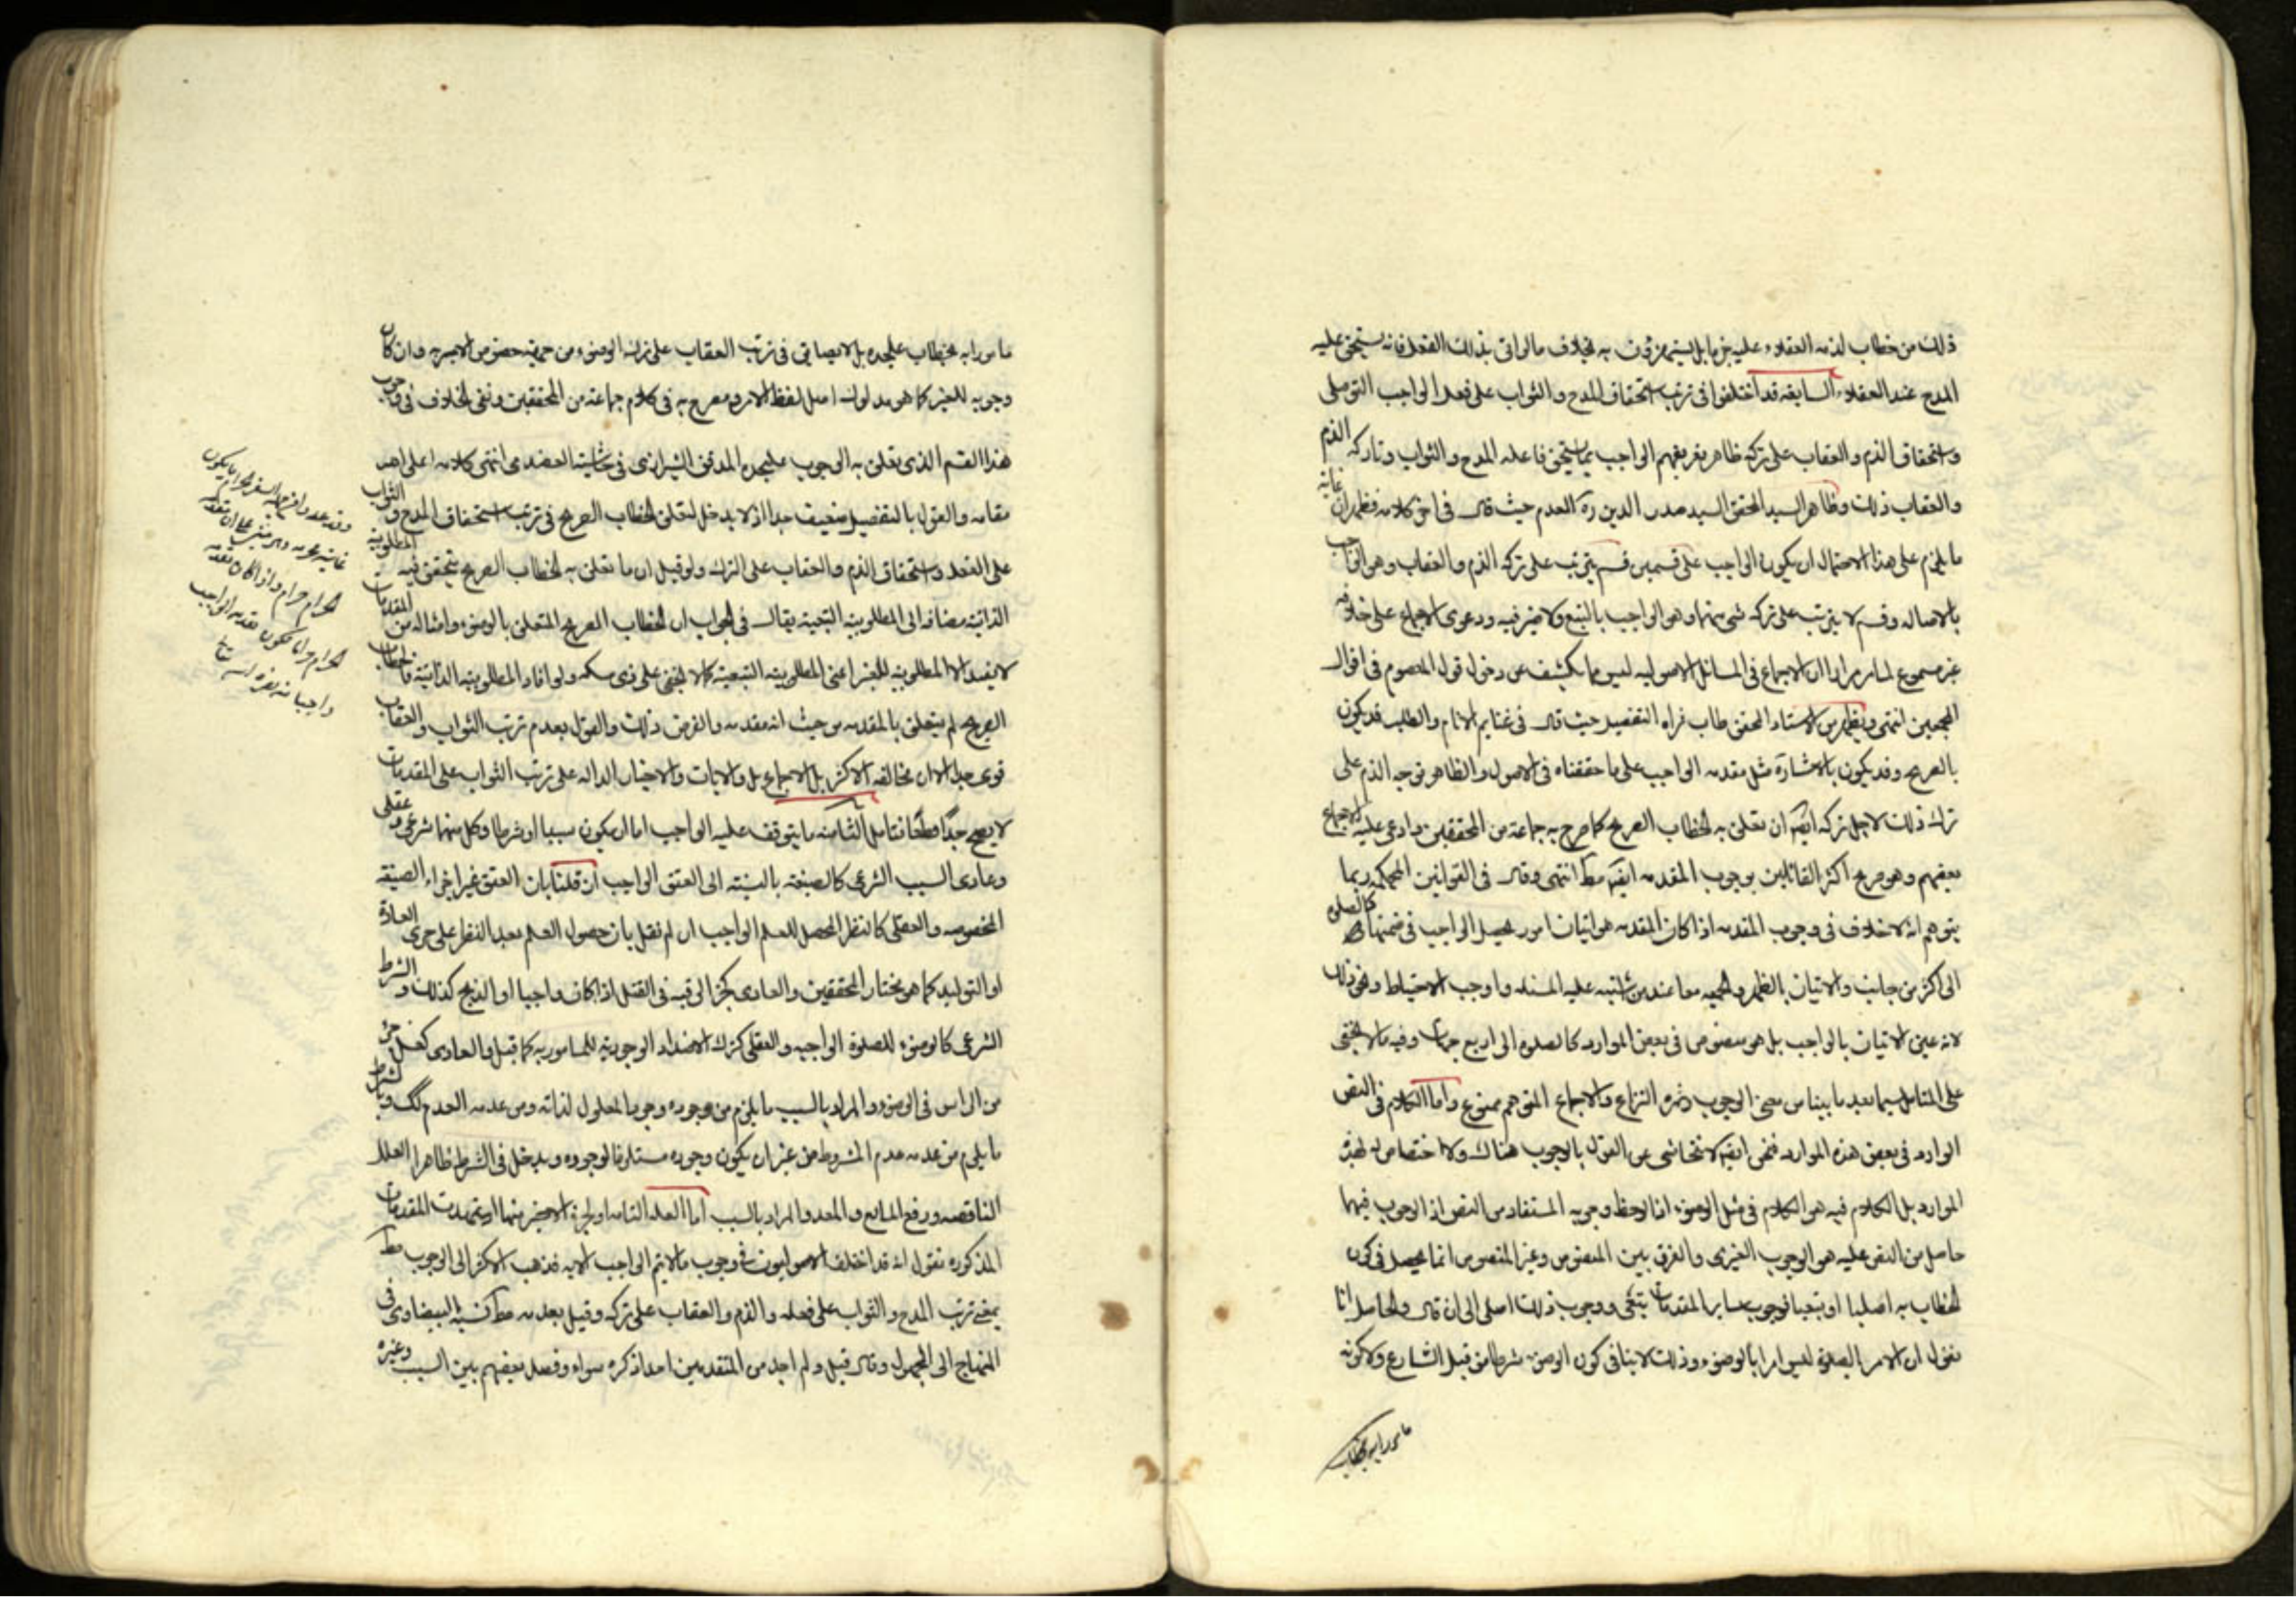 ذلك من خطاب لذمه العقلاء عليه بل ربما يستهزؤن به بخلاف مالواتى بذلك الفعل فانه يستحق عليه
المدح عند العقلاء السابعه قد اختلفوا فى ترتب استحقاق المدح والثواب على فعل الواجب التوصلى
واستحقاق الذم والعقاب على تركه ظاهر تعريفهم الواجب بما يستحق فاعله المدح والثواب وتاركه الذم
والعقاب ذلك وظاهر السيد المحقق السيد صدر الدين ره العدم حيث قال فى اخر كلامه فظهر ان غايه
ما يلزم على هذا الاحتمال ان يكون الواجب على قسمين قسم يترتب على تركه الذم والعقاب وهو الواجب
بالاصاله وقسم لا يترتب على تركه شى منهما وهو الواجب بالتبع ولا ضير فيه ودعوى الاجماع على خلافه
غير مسموع لما مر مرارا ان الاجماع فى المسائل الاصوليه ليس مما يكشف عن دخول قول المعصوم فى اقوال
المجمعين انتهى ويظهر من الاستاد المحقق طاب ثراه التفصيل حيث قال فى غنايم الانام والطلب قد يكون
بالصريح وقد يكون بالاشارة مثل مقدمه الواجب على ما حققناه فى الاصول والظاهر توجه الذم على
ترك ذلك لاجل تركه ايضا ان تعلق به الخطاب الصريح كما صرح به جماعة من المحققين وادعى عليه الاجماع
بعضهم وهو صريح اكثر القائلين بوجوب المقدمه ايضا مط انتهى وقال فى القوانين المحكمه ربما
يتوهم انه لا خلاف فى وجوب المقدمه اذا كان المقدمه هو اتيان امور يحصل الواجب فى ضمنها كالصلوة
الى اكثر من جانب والاتيان بالظهر والجمعه معا عند من اشتبه عليه المسئله واوجب الاحتياط ونحو ذلك
لانه عين الاتيان بالواجب بل هو منصوص فى بعض الموارد كالصلوه الى اربع جهات وفيه ما لا يخفى
على المتامل سيما بعد ما بينا من معنى الوجوب وثمره النزاع والاجماع المتوهم ممنوع واما الكلام فى النص
الوارد فى بعض هذه الموارد فنحن ايضا لا نتحاشى عن القول بالوجوب هناك ولا اختصاص له بهذه
الموارد بل الكلام فيه هو الكلام فى مثل الوضوء اذا لوحظ وجوبه المستفاد من النص اذ الوجوب فيها
حاصل من النص عليه هو الوجوب الغيرى والفرق بين المنصوص وغير المنصوص انما يحصل فى كون
الخطاب به اصليا او تبعيا فوجوب ساير المقدمات تبعى ووجوب ذلك اصلى الى ان قال والحاصل انا
نقول ان الامر بالصلوة ليس امرا بالوضوء وذلك لا ينافى كون الوضوء شرطا من قبل الشارع ولا كونه
مامورا به بخطاب
مامورا به بخطاب عليحده بل لا يضايق فى ترتب العقاب على ترك الوضوء من جهة خصوص الامر به وان كان
وجوبه للغير كما هو مدلول اصل لفظ الامر ومصرح به فى كلام جماعة من المحققين ونفى الخلاف فى وجوب
هذا القسم الذى تعلق به الوجوب عليحده المدقق الشيرازى فى حاشية العضدى انتهى كلامه اعلى الله
مقامه والقول بالتفصيل ضعيف جدا اذ لا يدخل لتعلق الخطاب الصريح فى ترتب استحقاق المدح والثواب
على الفعل واستحقاق الذم والعقاب على الترك ولو قيل ان ما تعلق به الخطاب الصريح يتحقق فيه المطلوبية
الذاتية مضافه الى المطلوبية التبعية يقال فى الجواب ان الخطاب الصريح المتعلق بالوضوء وامثاله من المقدمات
لا يفيد الا المطلوبية للغير اعنى المطلوبية التبعية كما لا يخفى على ذى مسكه ولو افاد المطلوبيه الذاتية فالخطاب
الصريح لم يتعلق بالمقدمه من حيث انه مقدمه والفرض ذلك والقول بعدم ترتب الثواب والعقاب
قوى جدا لا ان مخالفه الاكثر بل الاجماع بل والايات والاخبار الداله على ترتب الثواب على المقدمات
لا يصح جدا قطعا فتامل الثامنه ما يتوقف عليه الواجب اما ان يكون سببا او شرطا وكل منهما شرعى وعقلى
وعادى السبب الشرعى كالصيغة بالنسبة الى العتق الواجب ان قلنا بان العتق غير اجراء الصيغة
المخصوصه والعقلى كالنظر المحصل للعلم الواجب ان لم نقل بان حصول العلم بعد النظر على جرى العادة
او التوليد كما هو مختار المحققين والعادى كجز الرقبه فى القتل اذا كان واجبا او الذبح كذلك والشرط
الشرعى كالوضوء للصلوة الواجبه والعقلى كترك الاضداد الوجودية للمامور به كما قيل والعادى كغسل جزء
من الراس فى الوضوء والمراد بالسبب ما يلزم من وجوده وجود المعلول لذاته ومن عدمه العدم كك وبالشرط
ما يلزم من عدمه عدم المشروط من غير ان يكون وجوده مستلزما لوجوده ويدخل فى الشرط ظاهرا العلل
الناقصه ورفع المانع والمعد والمراد بالسبب اما العله التامه او الجزء الاخير منهما اذا تمهدت المقدمات
المذكوره نقول انه قد اختلف الاصوليون فى وجوب ما لا يتم الواجب الا به فذهب الاكثر الى الوجوب مط
بمعنى ترتب المدح والثواب على فعله والذم والعقاب على تركه وقيل بعدمه مط نسبه البيضاوى فى
المنهاج الى المجهول وقال قيل ولم اجد من المتقدمين احدا ذكره سواه وفصل بعضهم بين السبب وغيره